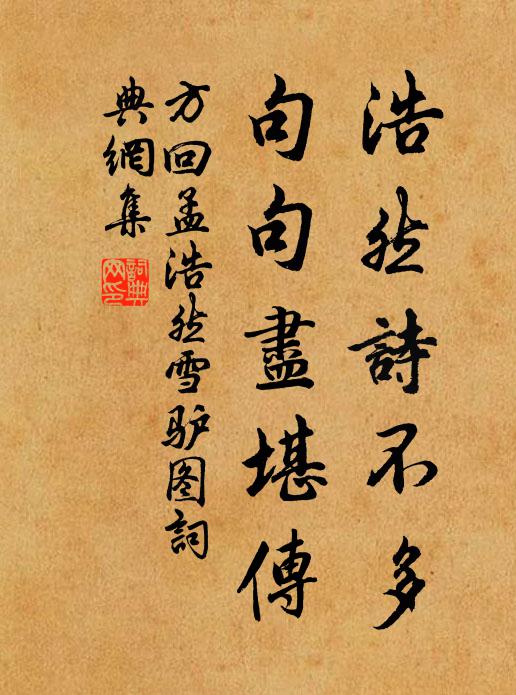 浩然詩不多
句句盡堪傳
方回孟浩然雪驴图詞
典網集
詞典网印